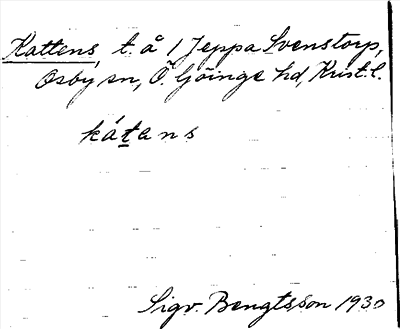 Kattens, t. å 1 Jeppa Svenstorp,
Osby sn, Ö. Göinge hd, Krist. l.
kátens
Sigv. Bengtsson 1930